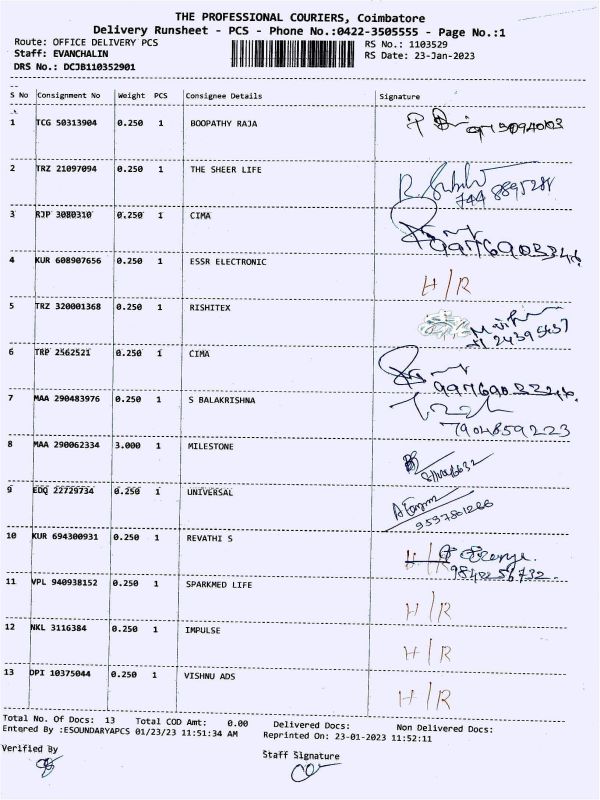 THE PROFESSIONAL COURIERS, Coimbatore
Delivery Runsheet - PCS - Phone No.:0422-3505555 - Page No.:1
Route: OFFICE DELIVERY PCS
Staff: EVANCHALIN
DRS No.: DCJB110352901
RS No.: 1103529
RS Date: 23-Jan-2023
S No Consignment No Weight PCS Consignee Details Signature
1 TCG 50313904 0.250 1 BOOPATHY RAJA
2 TRZ 21097094 0.250 1 THE SHEER LIFE
3 RJP 3080310 0.250 1 CIMA
4 KUR 608907656 0.250 1 ESSR ELECTRONIC H/R
5 TRZ 320001368 0.250 1 RISHITEX
6 TRP 2562521 0.250 1 CIMA
7 MAA 290483976 0.250 1 S BALAKRISHNA
7904859223
8 MAA 290062334 3.000 1 MILESTONE
9 EDQ 22729734 0.250 1 UNIVERSAL
10 KUR 694300931 0.250 1 REVATHI S H/R
11 VPL 940938152 0.250 1 SPARKMED LIFE H/R
12 NKL 3116384 0.250 1 IMPULSE H/R
13 DPI 10375044 0.250 1 VISHNU ADS H/R
Total No. Of Docs: 13 Total COD Amt: 0.00 Delivered Docs: Non Delivered Docs:
Entered By :ESOUNDARYAPCS 01/23/23 11:51:34 AM Reprinted On: 23-01-2023 11:52:11
Verified By
Staff Signature